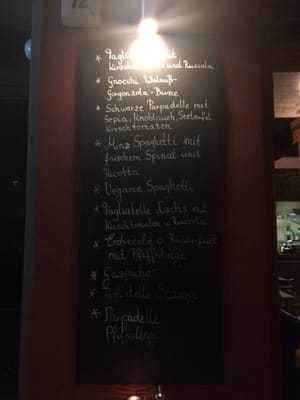 12
* Tagliatelle mit
Kirschtomaten und Ruccola
* Gnocchi Walnuß-
Gogonzola-Birne
* Schwarze Parpadelle mit
Sepia, Knoblauch, Seeteufel
Kirschtomaten
* Minz Spaghetti mit
frischem Spinat und
Ricotta
* Vegane Spaghetti
* Tagliatelle Lachs mit
Kirschtomaten u Ruccola
* Entrecote o
mit Pfifferlinge
* Gaspacho
* Tagliatelle Scampi
* Parpadelle
Pfifferlinge